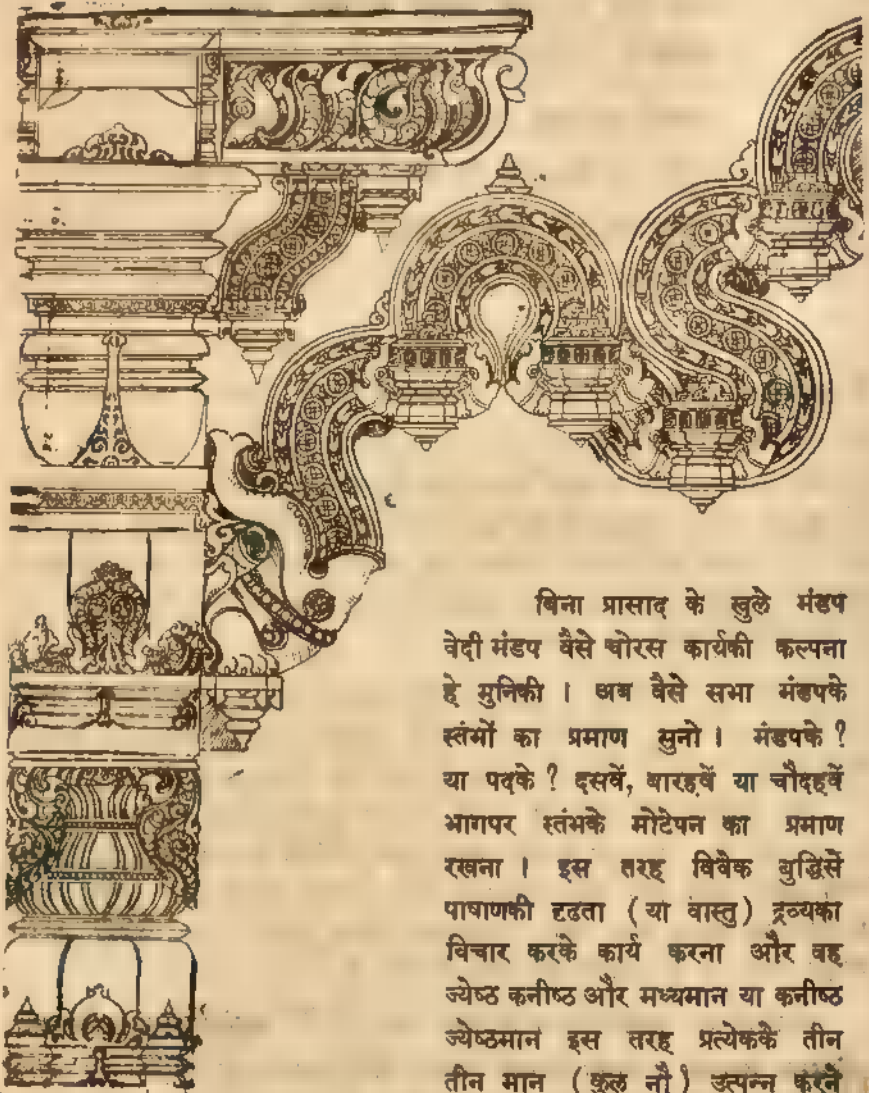 बिना प्रासाद के खुले मंडप
वेदी मंडप वैसे चोरस कार्यकी कल्पना
हे मुनिकी । अब वैसे सभा मंडपके
स्तंभों का प्रमाण सुनो । मंडपके ?
या पदके ? दसवें, बारहवें या चौदहवें
भागपर स्तंभके मोटेपन का प्रमाण
रखना । इस तरह विवेक बुद्धिसें
पाषाणकी दृढता ( या वास्तु ) द्रव्यका
विचार करके कार्य करना और वह
ज्येष्ठ कनीष्ठ और मध्यमान या कनीष्ठ
ज्येष्ठमान इस तरह प्रत्येकके तीन
तीन मान ( कुल नौ ) उत्पन्न करने